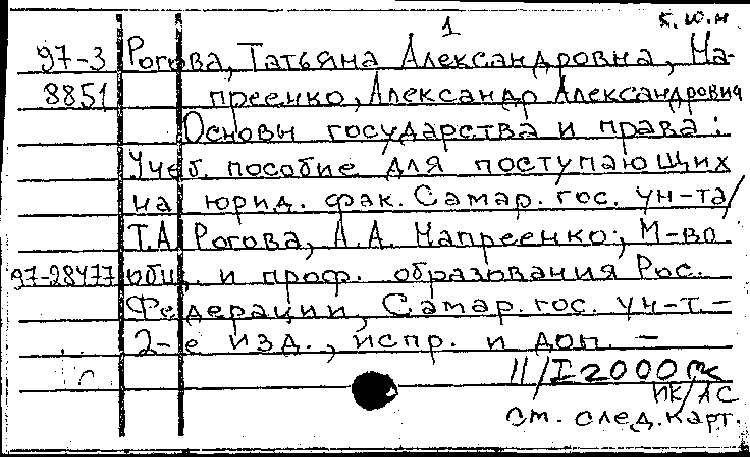 1 к.ю.н
97-3 Рогова, Татьяна Александровна, На-
8851 преенко, Александр Александрович
Основы государства и права:
Учеб. пособие для поступающих
на юрид. фак. Самар. гос. ун-та/
Т.А. Рогова, А.А. Напреенко; М-во
97-28477 общ. и проф. образования Рос.
Федерации, Самар. гос. ун-т. -
2-е изд., испр. и доп. -
11/I 2000
ПК/ЛС
см. след. карт.